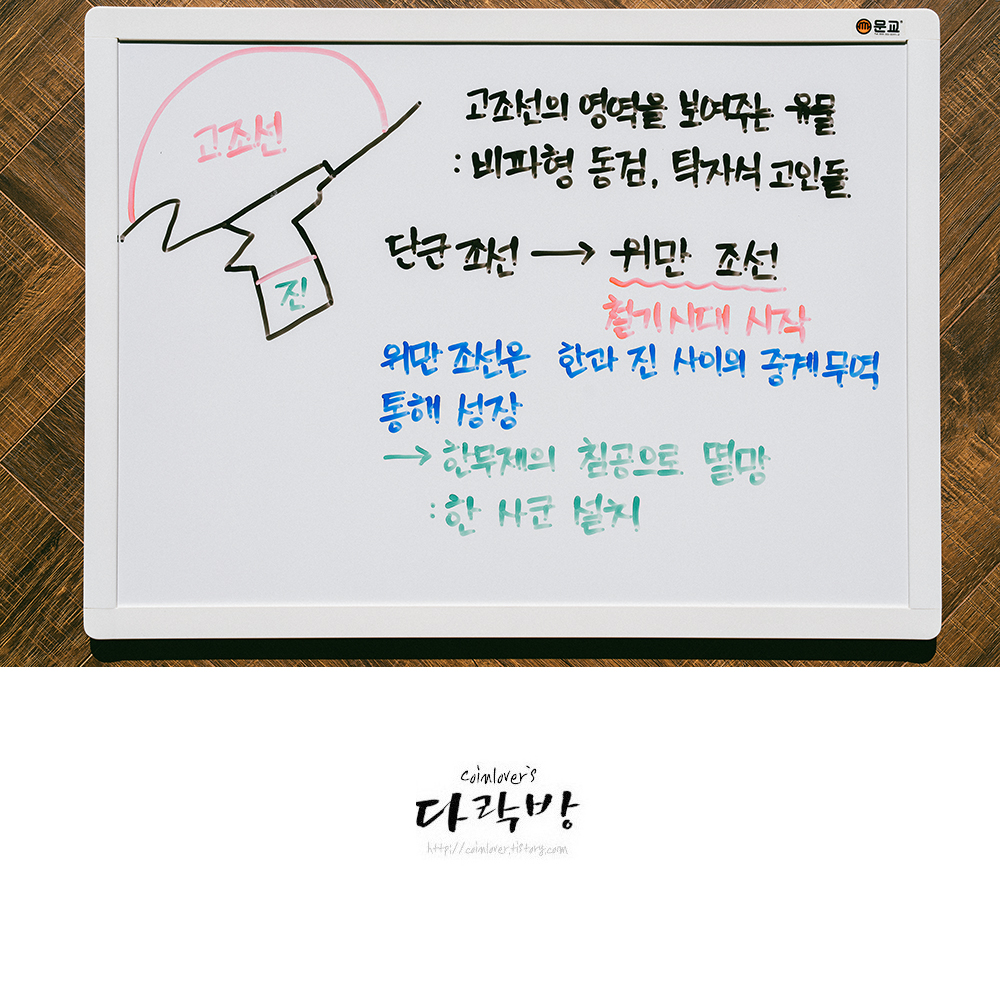 문교
고조선
진
고조선의 영역을 보여주는 유물
: 비파형 동검, 탁자식 고인돌
단군 조선 → 위만 조선
철기시대 시작
위만 조선은 한과 진 사이의 중계무역
통해 성장
→ 한무제의 침공으로 멸망
: 한 사군 설치
coinlover's
다락방
http://coinlover.tistory.com